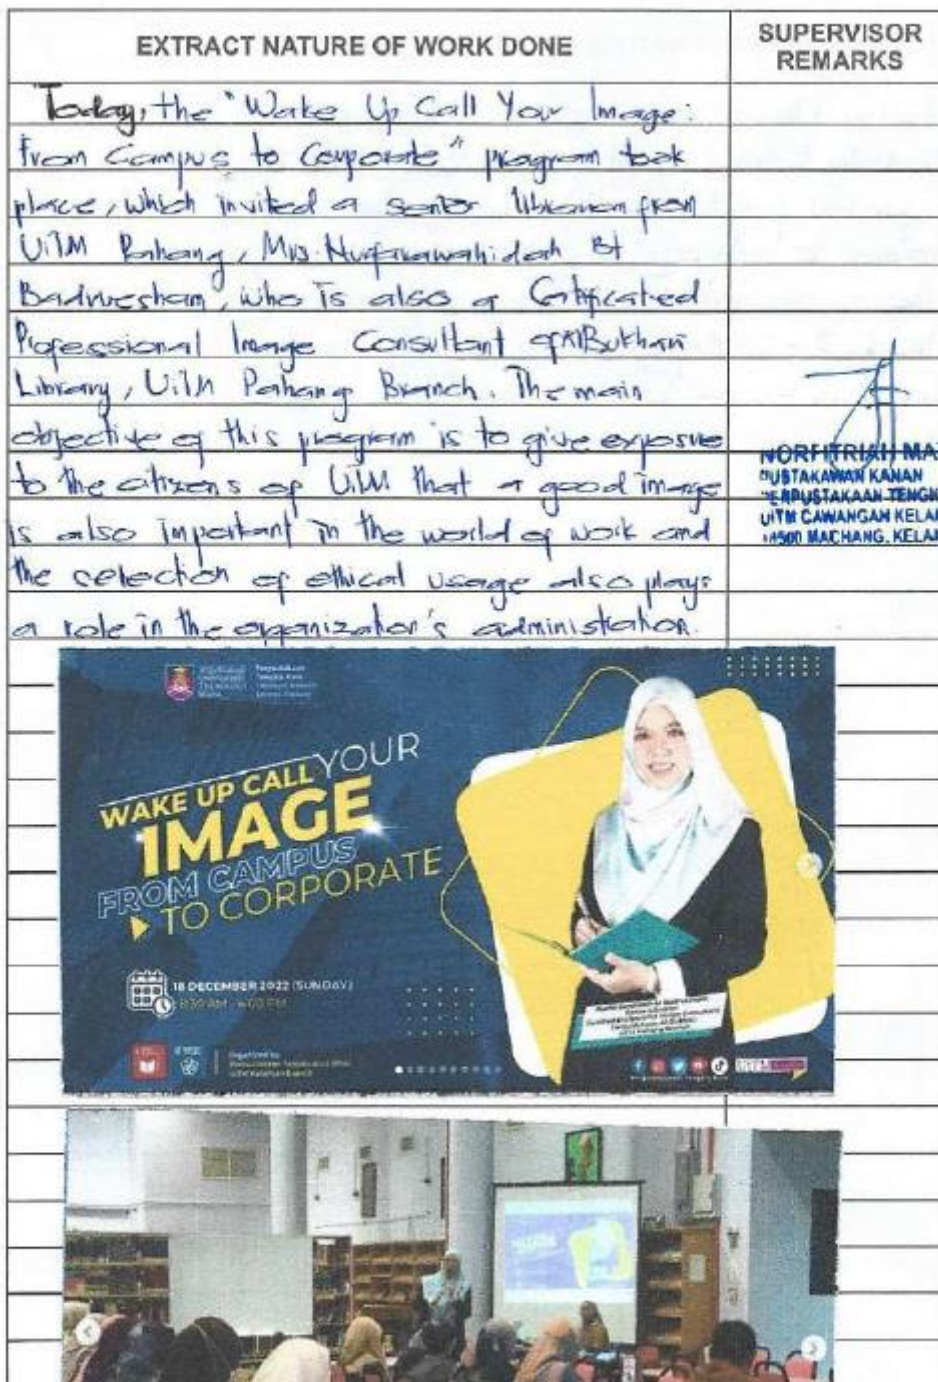 EXTRACT NATURE OF WORK DONE
SUPERVISOR
REMARKS
Today, the "Wake Up Call Your Image:
From Campus to Corporate" program took
place, which invited a senior librarian from
UiTM Pahang, Mrs. Bt
who is also a Certificated
Professional Image Consultant of AlBukhari
Library, UiTM Pahang Branch. The main
objective of this program is to give exposure
to the citizens of UiTM that a good image
is also important in the world of work and
the selection of ethical usage also plays
a role in the organization's administration.
NORFITRIAH MA
PUSTAKAWAN KANAN
PERPUSTAKAAN TENGK
UITM CAWANGAN KELA
MACHANG, KELA
WAKE UP CALL YOUR
IMAGE
FROM CAMPUS
TO CORPORATE
18 DECEMBER 2022 (SUNDAY)
8:30 AM - 4:00 PM
Organized by